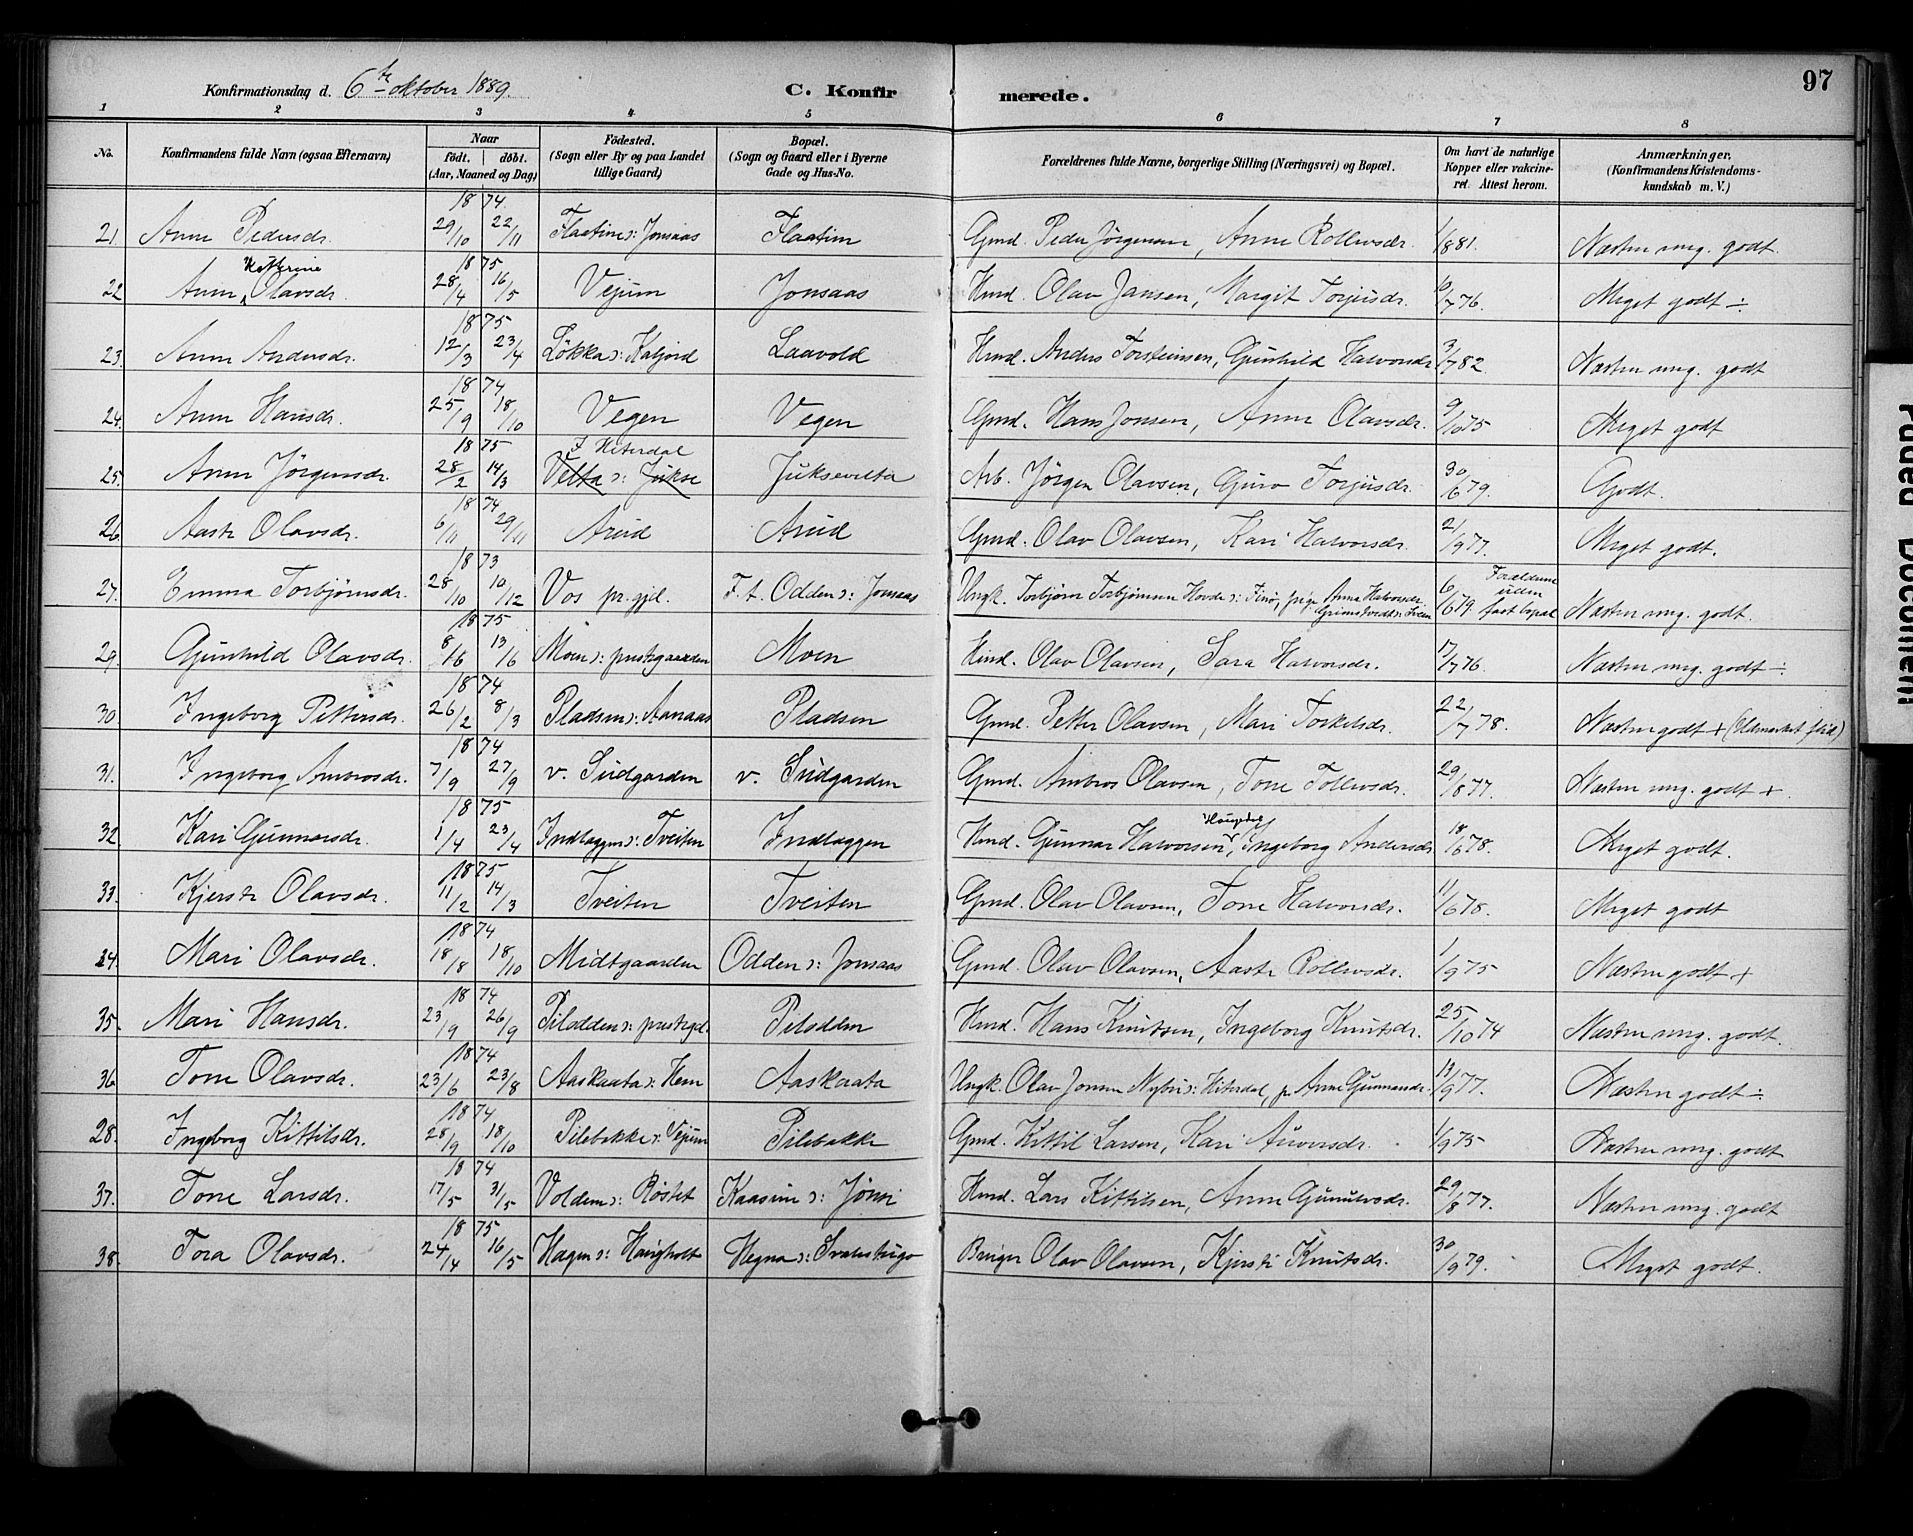 97
Konfirmationsdag d. 6te oktober 1889. C. Konfirmerede.
1 2 3 4 5 6 7 8
No. Konfirmandens fulde Navn (ogsaa Efternavn) Naar født. døbt. (Aar, Maaned og Dag) Fødested. (Sogn eller By og paa Landet tillige Gaard.) Bopæl. (Sogn og Gaard eller i Byerne Gade og Hus-No. Forældrenes fulde Navne, borgerlige Stilling (Næringsvei) og Bopæl. Om havt de naturlige Kopper eller vakcineret. Attest herom. Anmærkninger. (Konfirmandens Kristendomskundskab m. V.)
21. Anne Pedersdr. 1874 29/10 22/11 Flaatine ɔ: Jonsaas Flaatin Gmd. Peder Jørgensen, Anne Rollevsdr. 1881. Næsten meg. godt.
22 Anne Katherine Olavsdr. 1875 28/4 16/5 Vejum Jonsaas Hmd. Olav Jansen, Margit Torjusdr. 6/7 76. Meget godt ÷
23. Anne Andersdr. 1875 12/3 23/4 Løkka ɔ: Kasjord Laavold Hmd. Anders Torsteinsen, Gunhild Halvorsdr. 3/7 82. Næsten meg. godt
24. Anne Hansdr. 1874 25/9 18/10 Vegen Vegen Gmd. Hans Jonsen, Anne Olavsdr. 9/10 75 Meget godt
25. Anne Jørgensdr. 1875 28/2 14/3 I Hiterdal Velta ɔ: Jukse Juksevelta Arb. Jørgen Olavsen, Guro Torjusdr. 30/6 79. Godt.
26. Aaste Olavsdr. 1874 6/11 29/11 Arud Arud Gmd. Olav Olavsen, Kari Halvorsdr. 21/9 77. Meget godt.
27. Emma Torbjørnsdr. 1873 28/10 10/12 Vos pr.gjd. F.t. Odden ɔ: Jonsaas Ungk. Torbjørn Torbjørnsen Hovde ɔ: Finø, pige Anne Halvorsdr. 6/6 79. Forældrene uden fast bopæl Næsten meg. godt.
29. Gunhild Olavsdr. 1875 8/6 13/6 Moen ɔ: prestegaarden Moen Hmd. Olav Olavsen, Sara Halvorsdr. 17/7 76. Næsten meg. godt ÷
30. Ingeborg Pettersdr. 1874 26/2 8/3 Pladsen ɔ: Aanaas Pladsen Gmd. Petter Olavsen, Mari Torkelsdr. 22/7 78. Næsten godt + (Udmærket flid)
31. Ingeborg Ambrosdr. 1874 7/9 27/9 v. Sudgarden v. Sudgarden Gmd. Ambros Olavsen, Tone Tollevsdr. 29/8 77. Næsten meg. godt +.
32 Kari Gunnarsdr. 1875 1/4 23/4 Indlaggen ɔ: Tveiten Indlaggen Hmd. Gunnar Halvorsen, Ingeborg Andersdr. 18/6 78. Meget godt.
33. Kjersti Olavsdr. 1875 11/2 14/3 Tveiten Tveiten Gmd. Olav Olavsen, Tone Halvorsdr. 11/6 78. Meget godt
34. Mari Olavsdr. 1874 18/8 18/10 Midtgaarden Odden ɔ: Jonsaas Gmd. Olav Olavsen, Aaste Rollevsdr. 1/9 75 Næsten godt +
35. Mari Hansdr. 1874 23/9 26/9 Pilodden ɔ: prestegd. Pilodden Hmd. Hans Knutsen, Ingeborg Knutsdr. 25/10 74 Næsten meg. godt.
36 Tone Olavsdr. 1874 23/6 23/8 Aaskaata ɔ: Hem Aaskaata Ungk. Olav Jonsen Nybu ɔ: Hiterdal, p. Anne Gunnarsdr. 13/9 77. Næsten godt ÷
28. Ingeborg Kittilsdr. 1874 28/9 18/10 Pilebakke ɔ: Vejum Pilebakke Gmd. Kittil Larsen, Kari Auversdr. 1/9 75 Næsten meg. godt
37. Tone Larsdr. 1874 17/5 31/5 Volden ɔ: Røstet Kaasene ɔ: Jønsi Hmd. Lars Kittilsen, Anne Gunulvsdr. 29/8 77. Næsten meg. godt
38. Tora Olavsdr. 1875 24/4 16/5 Hagen ɔ: Haugholt Hegna ɔ: Olav Olavsen, Kjersti Knutsdr. 30/9 79. Meget godt.